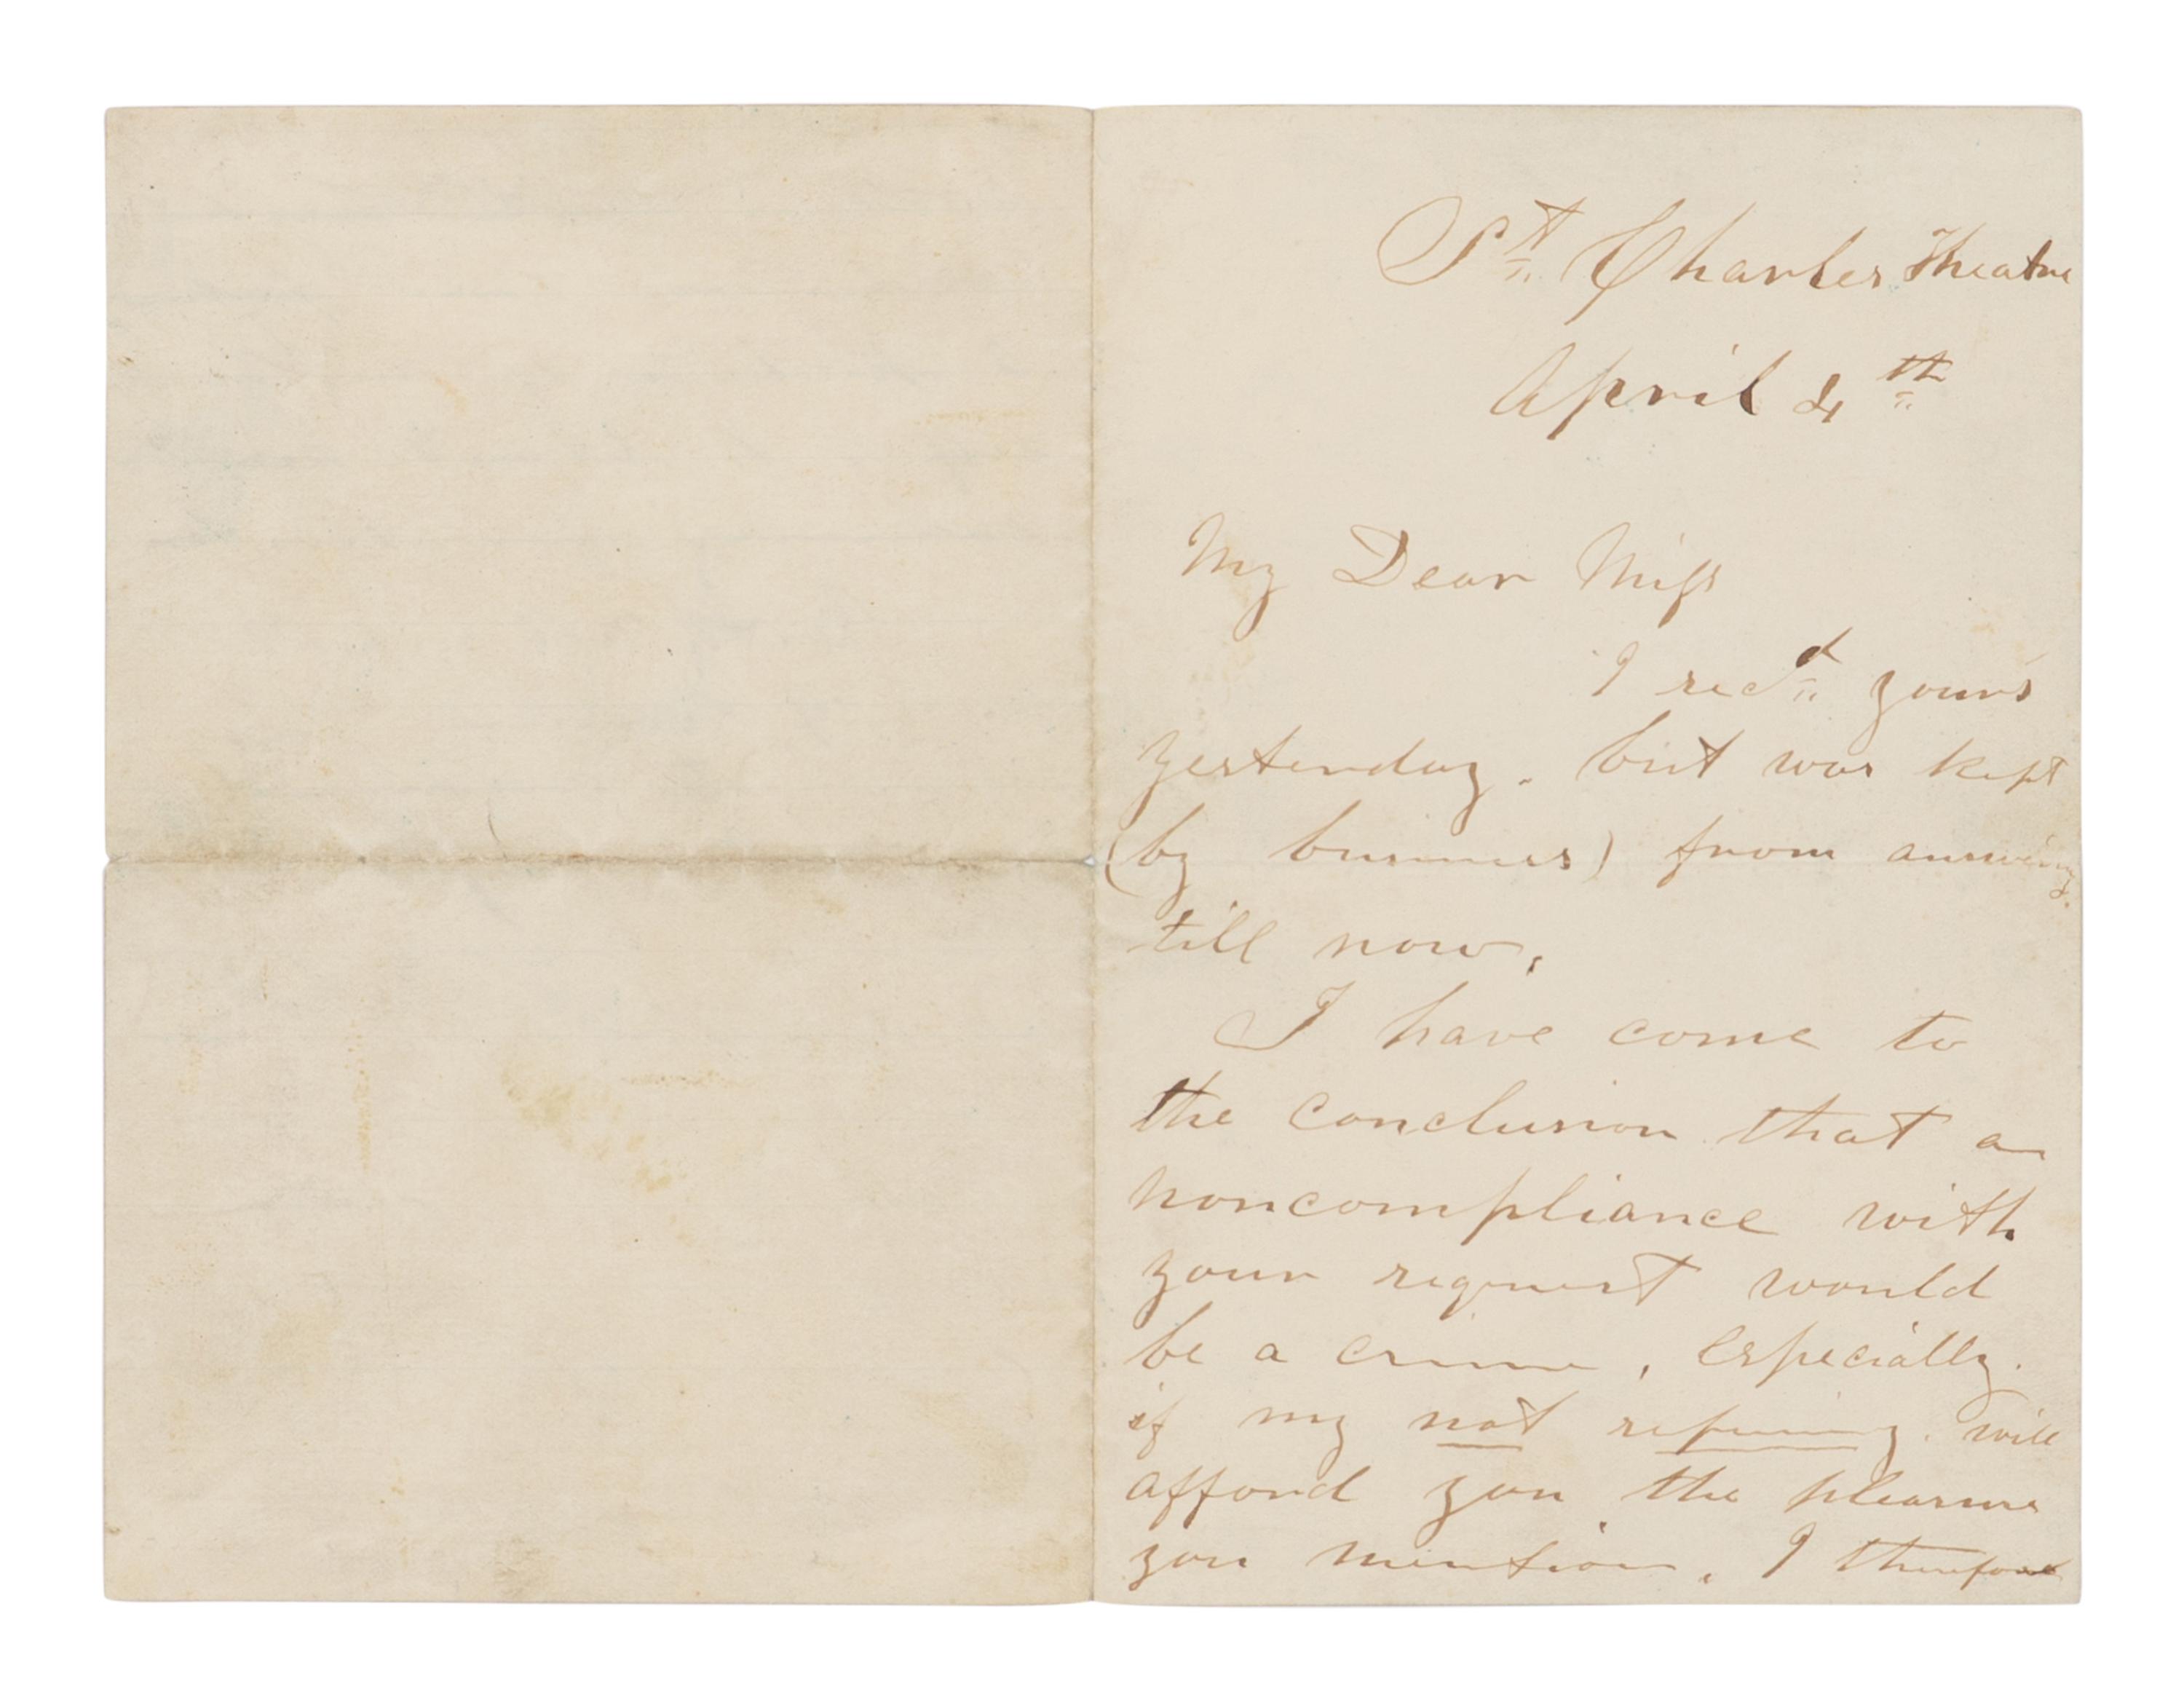 St Charles Theatre
April 4th
My Dear Miss
I recd yours
yesterday. but was kept
(by business) from answering.
till now.
I have come to
the conclusion that a
noncompliance with
your request would
be a crime, especially.
if my not refusing. will
afford you the pleasure
you mention. I therefore